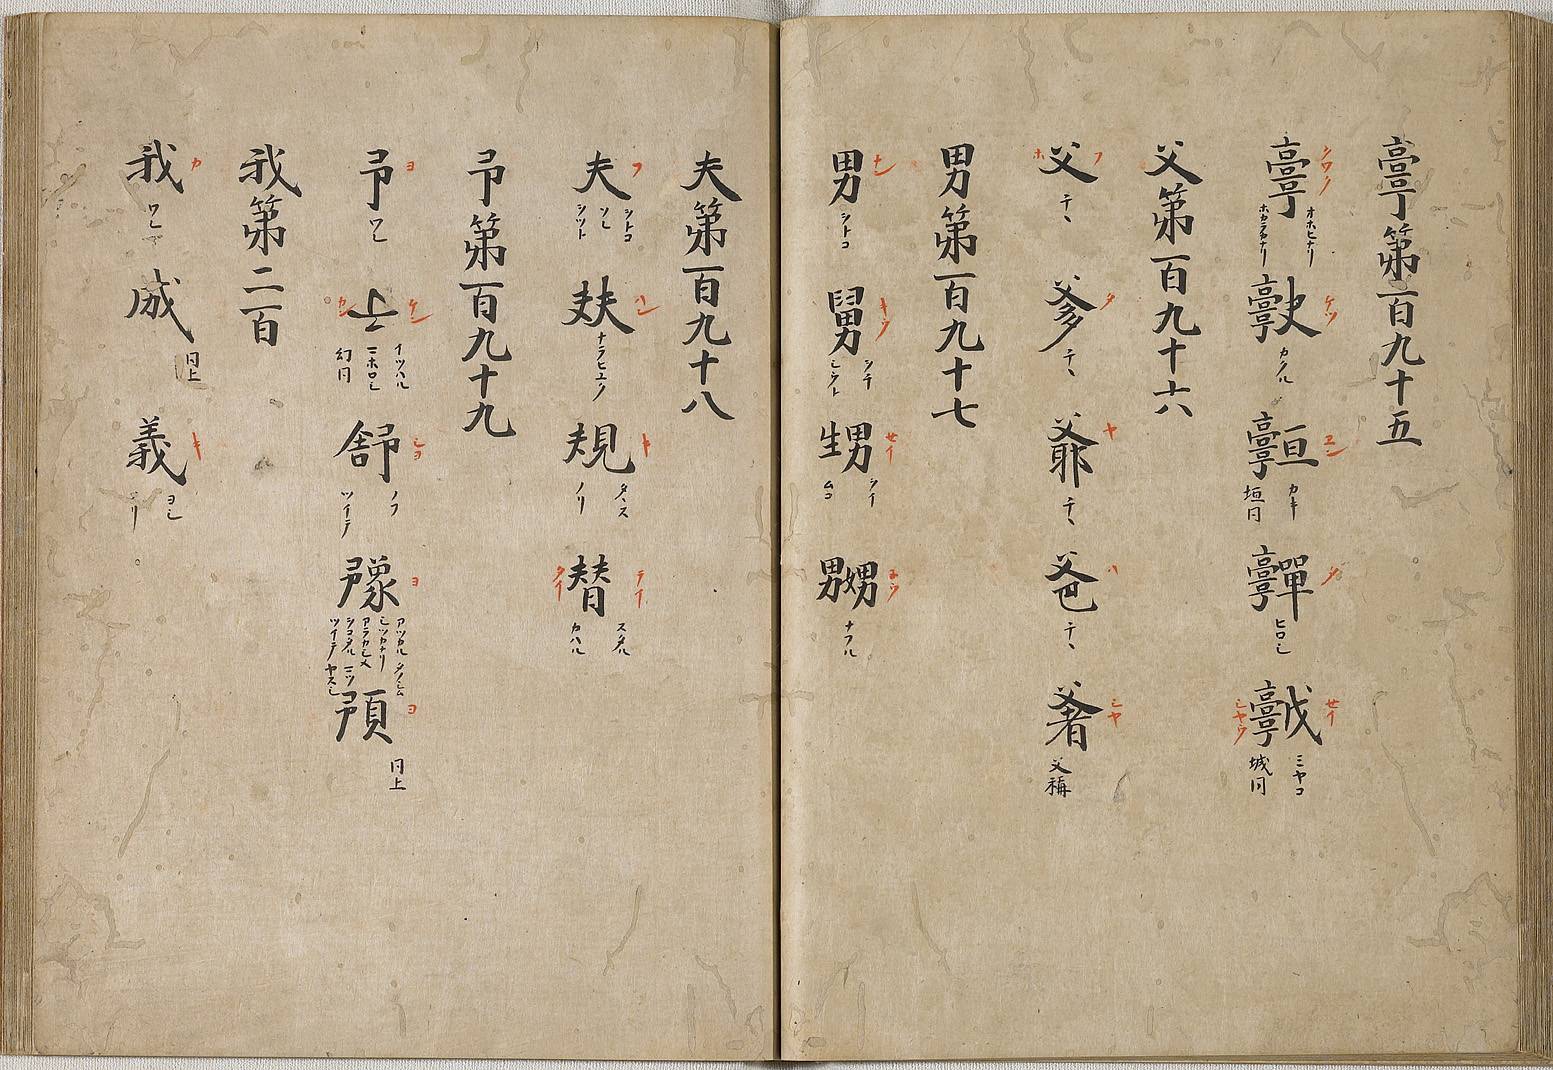 𩫏第一百九十五
𩫏 オホヒナリ ホカラカナリ ケツ カクル カキ 垣同 タ ヒロシ セイ シヤウ ミヤコ 城同
父第一百九十六
父 フ ホ チヽ 爹 タ チヽ 爺 ヤ チヽ 爸 ハ チヽ シヤ 父稱
男第一百九十七
男 ナン ヲトコ 舅 キウ シウト 甥 セイ ヲイ ムコ 嬲 ナフル
夫第一百九十八
夫 フ ヲトコ ソレ ヲツト 㚘 ハン ナラヒユク 規 キ タヽス ノリ 替 テイ タイ スタル カハル
予第一百九十九
予 ヨ ワレ ケン カン イツハル マホロシ 幻同 舒 シヨ ノフ ツイテ 豫 ヨ アツカル タノシム アラカシメ ツイテ ヤスシ 預 ヨ 同上
我第二百
我 カ ワレ 同上 義 キ ヨシ ノリ